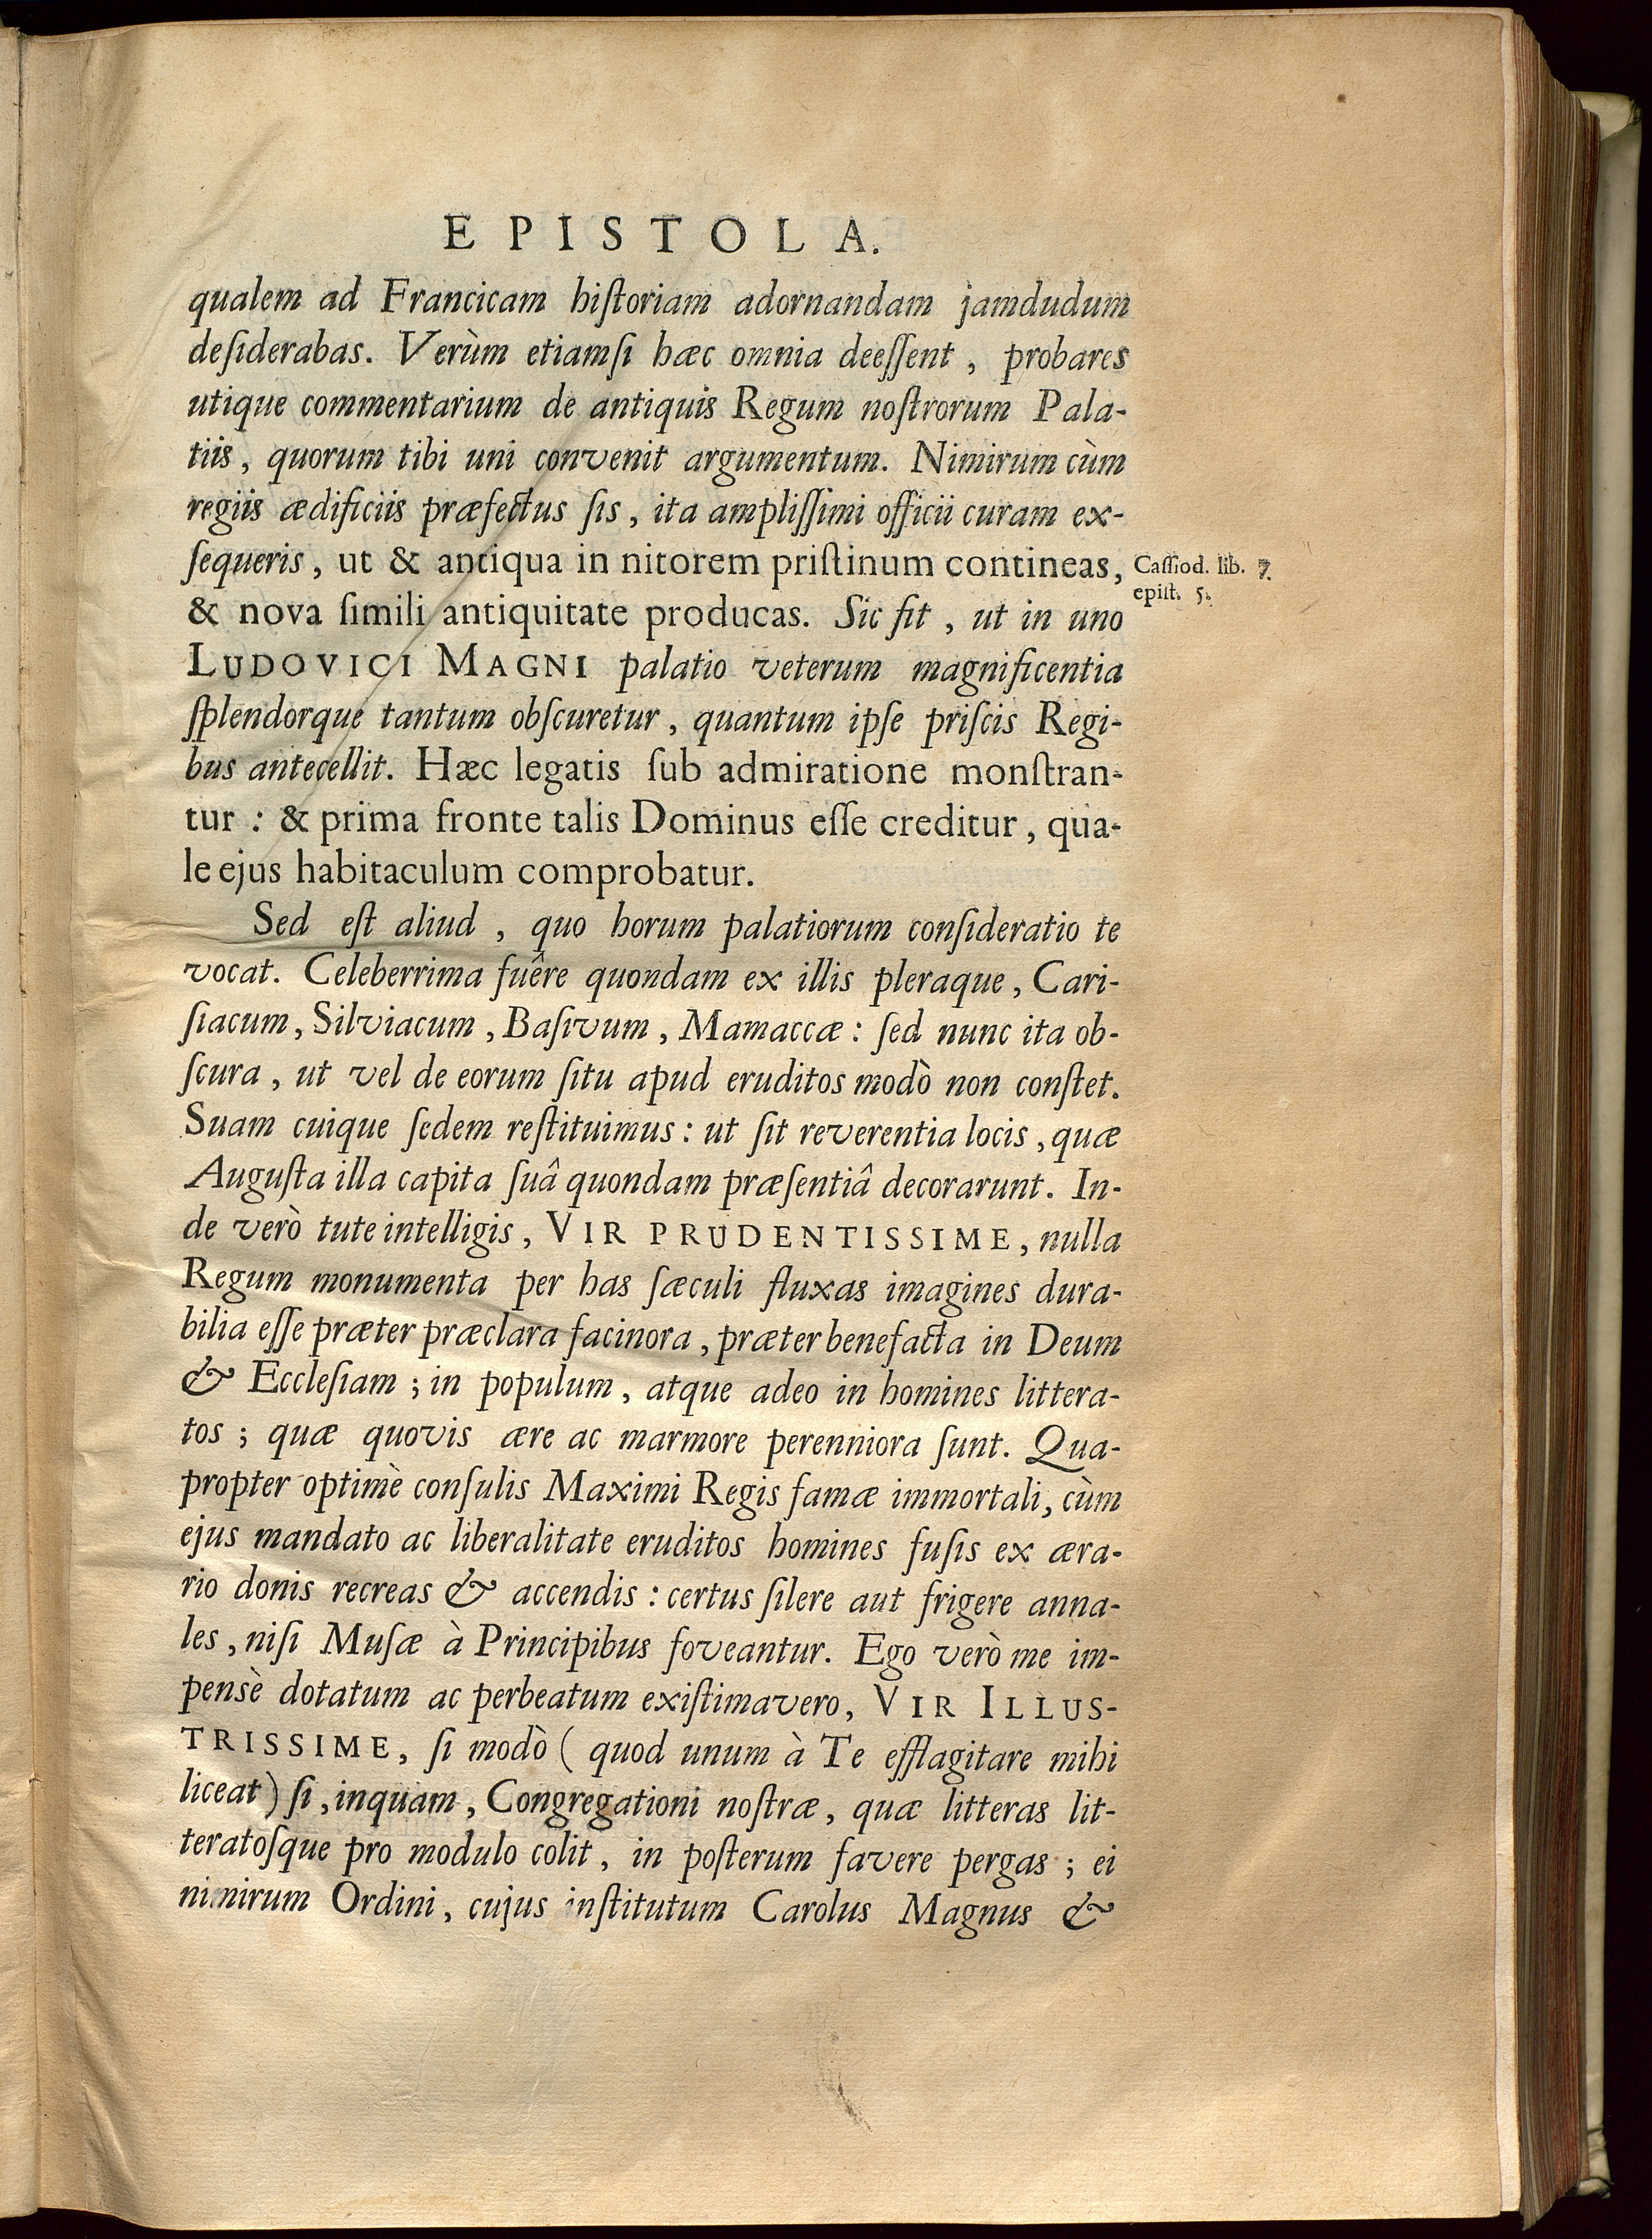 EPISTOLA.
qualem ad Francicam hiſtoriam adornandam jamdudum
deſiderabas. Verùm etiamſi hæc omnia deeſſent, probares
utique commentarium de antiquis Regum noſtrorum Pala-
tiis, quorum tibi uni convenit argumentum. Nimirum cùm
regiis ædificiis præfectus ſis, ita ampliſſimi officii curam ex-
ſequeris, ut & antiqua in nitorem priſtinum contineas,
Caſſiod. lib. 7.
epiſt. 5.
& nova ſimili antiquitate producas. Sic fit, ut in uno
LUDOVICI MAGNI palatio veterum magnificentia
ſplendorque tantum obſcuretur, quantum ipſe priſcis Regi-
bus antecellit. Hæc legatis ſub admiratione monſtran-
tur: & prima fronte talis Dominus eſſe creditur, qua-
le ejus habitaculum comprobatur.
Sed eſt aliud, quo horum palatiorum conſideratio te
vocat. Celeberrima fuêre quondam ex illis pleraque, Cari-
ſiacum, Silviacum, Baſivum, Mamaccæ: ſed nunc ita ob-
ſcura, ut vel de eorum ſitu apud eruditos modò non conſtet.
Suam cuique ſedem reſtituimus: ut ſit reverentia locis, quæ
Auguſta illa capita ſuâ quondam præſentiâ decorarunt. In-
de verò tute intelligis, VIR PRUDENTISSIME, nulla
Regum monumenta per has ſæculi fluxas imagines dura-
bilia eſſe præter præclara facinora, præter benefacta in Deum
& Eccleſiam; in populum, atque adeo in homines littera-
tos; quæ quovis ære ac marmore perenniora ſunt. Qua-
propter optimè conſulis Maximi Regis famæ immortali, cùm
ejus mandato ac liberalitate eruditos homines fuſis ex æra-
rio donis recreas & accendis: certus ſilere aut frigere anna-
les, niſi Muſæ à Principibus foveantur. Ego verò me im-
pensè dotatum ac perbeatum exiſtimavero, VIR ILLUS-
TRISSIME, ſi modò (quod unum à Te efflagitare mihi
liceat) ſi, inquam, Congregationi noſtræ, quæ litteras lit-
teratoſque pro modulo colit, in poſterum favere pergas; ei
nimirum Ordini, cujus inſtitutum Carolus Magnus &